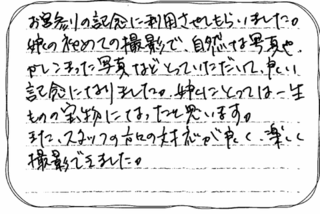 お宮参りの記念に利用させてもらいました。
娘の初めての撮影で、自然な写真や、
かしこまった写真などとっていただいて、良い
記念になりました。娘にとっては一生
ものの宝物になったと思います。
また、スタッフの方の対応が良く、楽しく
撮影できました。